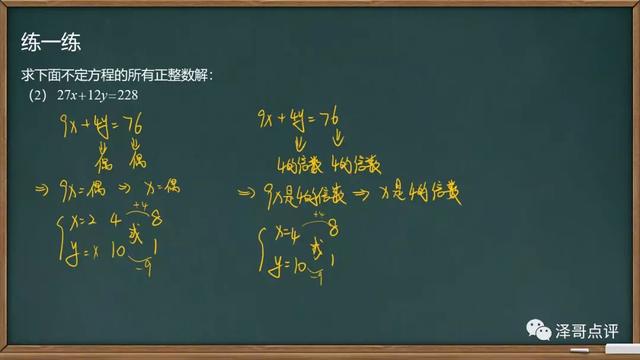 练一练
求下面不定方程的所有正整数解：
（2） 27x+12y=228
9x+4y=76
偶 偶
⇒ 9x=偶 ⇒ x=偶
+4
x=2 4 或 8
y=x 10 1
-9
9x+4y=76
4的倍数 4的倍数
⇒ 9x是4的倍数 ⇒ x是4的倍数
+4
x=4 或 8
y=10 1
-9
泽哥点评